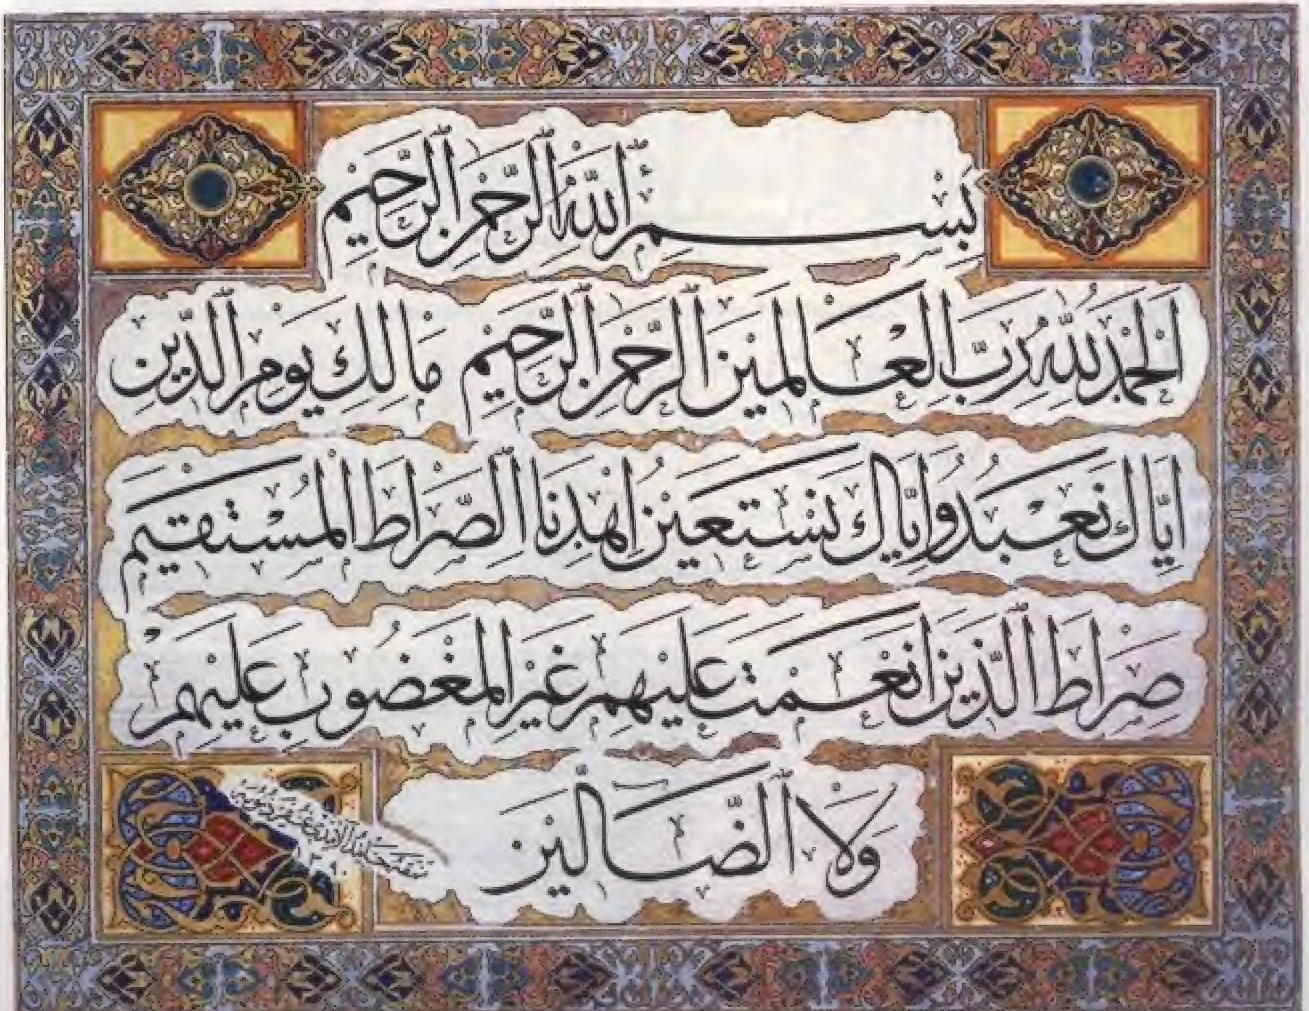 بِسْمِ اللهِ الرَّحْمٰنِ الرَّحِيْمِ
اَلْحَمْدُ لِلّٰهِ رَبِّ الْعَالَمِيْنَ الرَّحْمٰنِ الرَّحِيْمِ مَالِكِ يَوْمِ الدِّيْنِ
اِيَّاكَ نَعْبُدُ وَاِيَّاكَ نَسْتَعِيْنُ اِهْدِنَا الصِّرَاطَ الْمُسْتَقِيْمَ
صِرَاطَ الَّذِيْنَ اَنْعَمْتَ عَلَيْهِمْ غَيْرِ الْمَغْضُوْبِ عَلَيْهِمْ
وَلَا الضَّالِّيْنَ
١٣٩٠